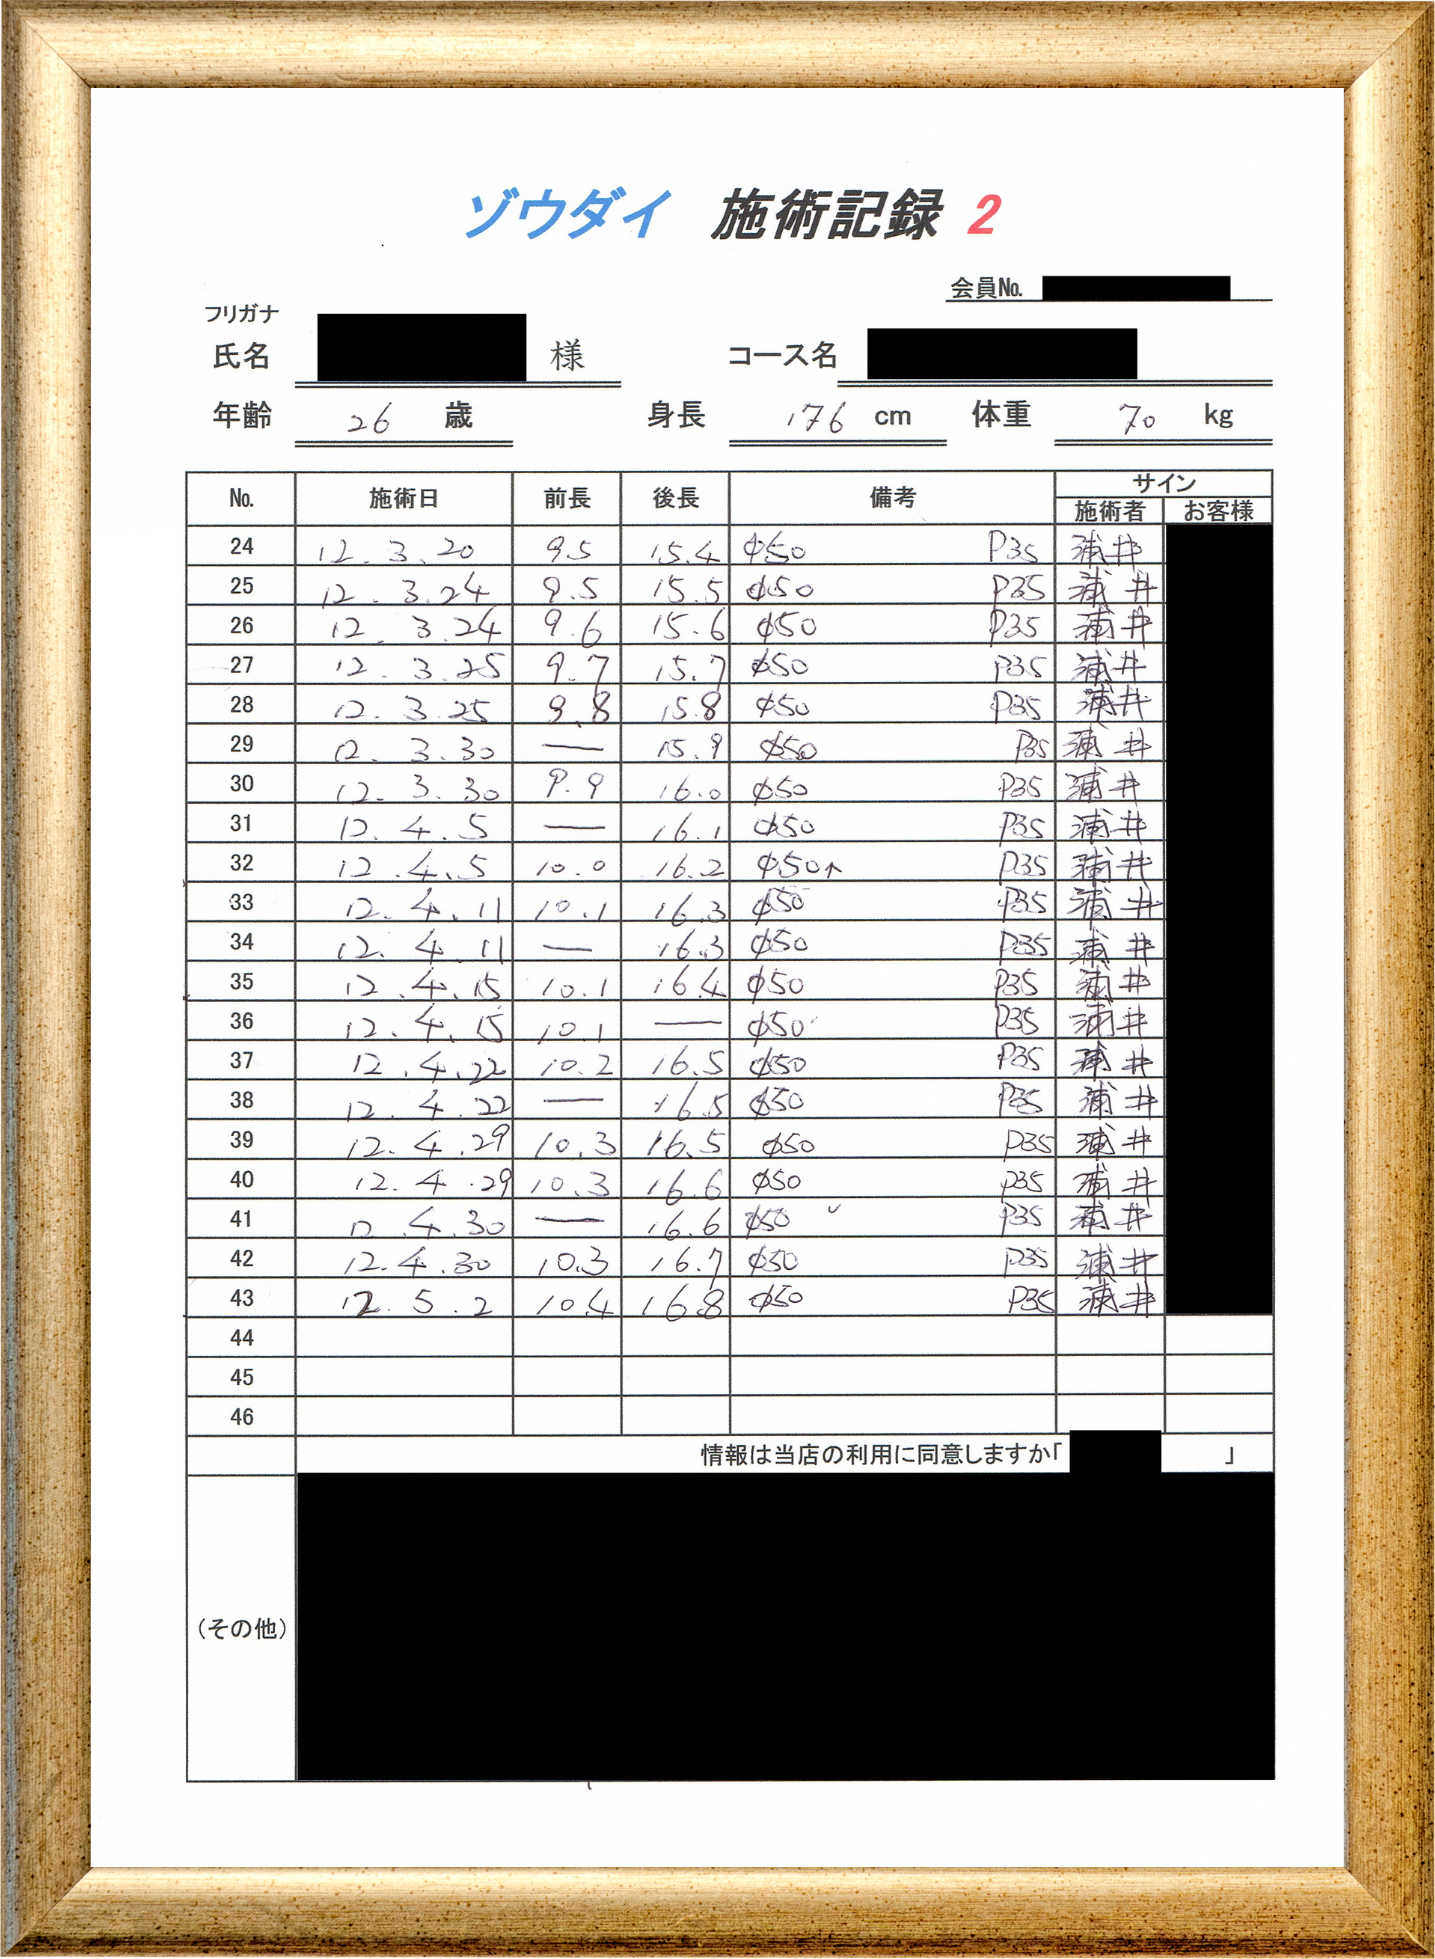 ゾウダイ 施術記録 2
会員No.
フリガナ
氏名 様 コース名
年齢 26 歳 身長 176 cm 体重 70 kg
No. 施術日 前長 後長 備考 サイン
施術者 お客様
24 12.3.20 9.5 15.4 φ50 P35 浦井
25 12.3.24 9.5 15.5 φ50 P35 浦井
26 12.3.24 9.6 15.6 φ50 P35 浦井
27 12.3.25 9.7 15.7 φ50 P35 浦井
28 12.3.25 9.8 15.8 φ50 P35 浦井
29 12.3.30 — 15.9 φ50 P35 浦井
30 12.3.30 9.9 16.0 φ50 P35 浦井
31 12.4.5 — 16.1 φ50 P35 浦井
32 12.4.5 10.0 16.2 φ50↑ P35 浦井
33 12.4.11 10.1 16.3 φ50 P35 浦井
34 12.4.11 — 16.3 φ50 P35 浦井
35 12.4.15 10.1 16.4 φ50 P35 浦井
36 12.4.15 10.1 — φ50 P35 浦井
37 12.4.22 10.2 16.5 φ50 P35 浦井
38 12.4.22 — 16.5 φ50 P35 浦井
39 12.4.29 10.3 16.5 φ50 P35 浦井
40 12.4.29 10.3 16.6 φ50 P35 浦井
41 12.4.30 — 16.6 φ50 P35 浦井
42 12.4.30 10.3 16.7 φ50 P35 浦井
43 12.5.2 10.4 16.8 φ50 P35 浦井
44
45
46
情報は当店の利用に同意しますか「 」
(その他)